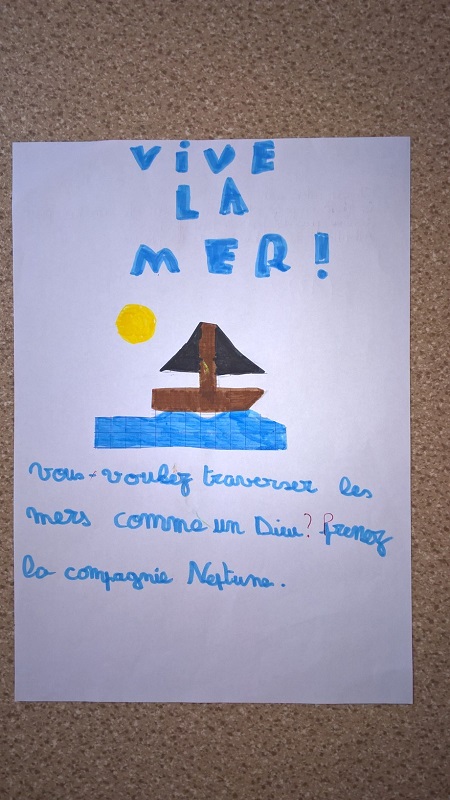 ViVE
LA
MER!
Vous voulez traverser les
mers comme un Dieu? Prenez
la compagnie Neptune.